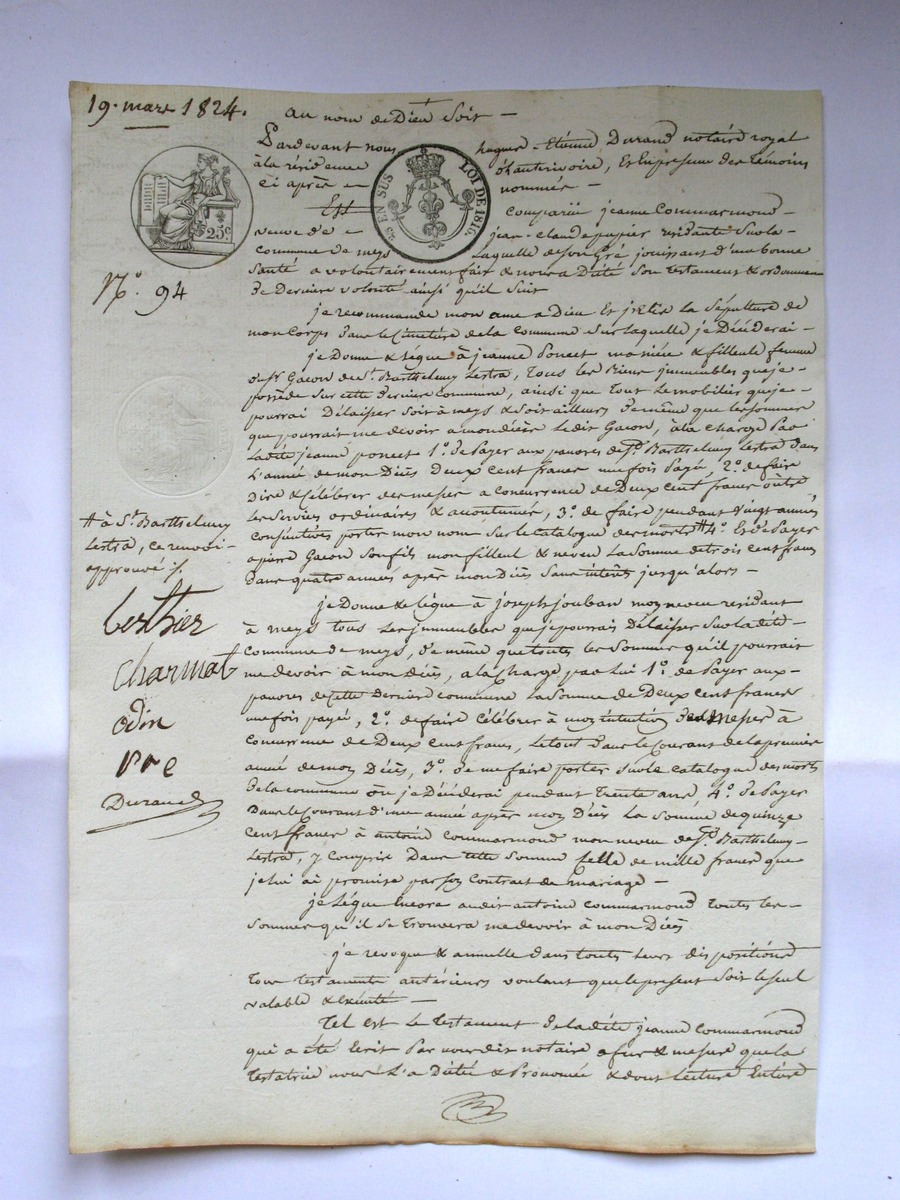 19. mars 1824.
au nom de Dieu soit —
Pardevant nous Jacques-Etienne Durand notaire royal
à la résidence d'hauterivoire, Et En presence des temoins
ci après — nommés —
25c
EN SUS LOI DE 1816
Est Comparüe jeanne Commarmond —
veuve de jean-claude papier residante sur la
commune de meys Laquelle de son Gré jouissant d'une bonne
Santé a volontairement fait & nous a Dicté Son testament & ordonnance
De Derniere volonté ainsi qu'il suit
No. 94
je recommande mon ame a Dieu Et la Sépulture de
mon Corps dans le Cimetière de la commune Sur laquelle je Décèderai —
je Donne & Légue à jeanne Poncet ma niéce & filleule femme
d'Ant Gacon de St. Barthelemy Lestra, Tous les Biens immeubles que je
possède Sur cette derniere commune, ainsi que tout Le mobilier que je
pourrai Délaisser Soit à meys & Soit ailleurs De même que les Sommes
que pourrait me devoir a mon décès Le dit Gacon, à la charge Par
La dite jeanne poncet 1o. de Payer aux pauvres de St. Barthelemy Lestra dans
L'année de mon Décès Deux cent francs une fois Payé, 2o. de faire
Dire & Célébrer des messes a concurrence de Deux cent francs outre
Les Services ordinaires & accoutumés, 3o. de faire pendant vingt années
Consécutives porter mon nom Sur le catalogue des morts # 4o. Et de Payer
a pierre Gacon Son fils mon filleul & neveu La Somme de trois cent francs
Dans quatre années après mon Décès Sans interêts jusqu'alors —
# à St. Barthelemy
Lestra, ce renvoi
approuvé ./.
Berthier
Charmat
odin
pre
Durand
je Donne & Légue à joseph jouban mon neveu residant
à meys tous Les immeubles que je pourrais Délaisser Sur La dite
Commune de meys, De même que toutes les Sommes qu'il pourrait
me devoir à mon décès, a la Charge par lui 1o. de Payer aux
pauvres de cette Derniere commune La Somme de Deux cent francs
une fois payée, 2o. de faire célébrer à mon intention des messes à
Concurrence de Deux cent francs, Le tout dans le Courant de la premiere
année de mon Décès, 3o. de me faire porter Sur le catalogue des morts
de la commune ou je Décèderai pendant trente ans, 4o. de Payer
Dans le Courant d'une année après mon Décès La Somme de quinze
cent francs à antoine commarmond mon neveu de St. Barthelemy-
Lestra, y Compris Dans cette Somme Celle de mille francs que
je lui ai promise par son Contrat de mariage —
je Légue Encore audit antoine commarmond toutes les
Sommes qu'il se trouvera me devoir à mon Décès
je revoque & annulle dans toutes leurs dispositions
tous testaments antérieurs voulant que le present Soit le seul
valable & exécuté —
Tel est Le Testament de la dite jeanne commarmond
qui a été Ecrit Par nous dit notaire a fur & mesure que la
Testatrice nous L'a Dicté & Prononcé & dont Lecture Entière